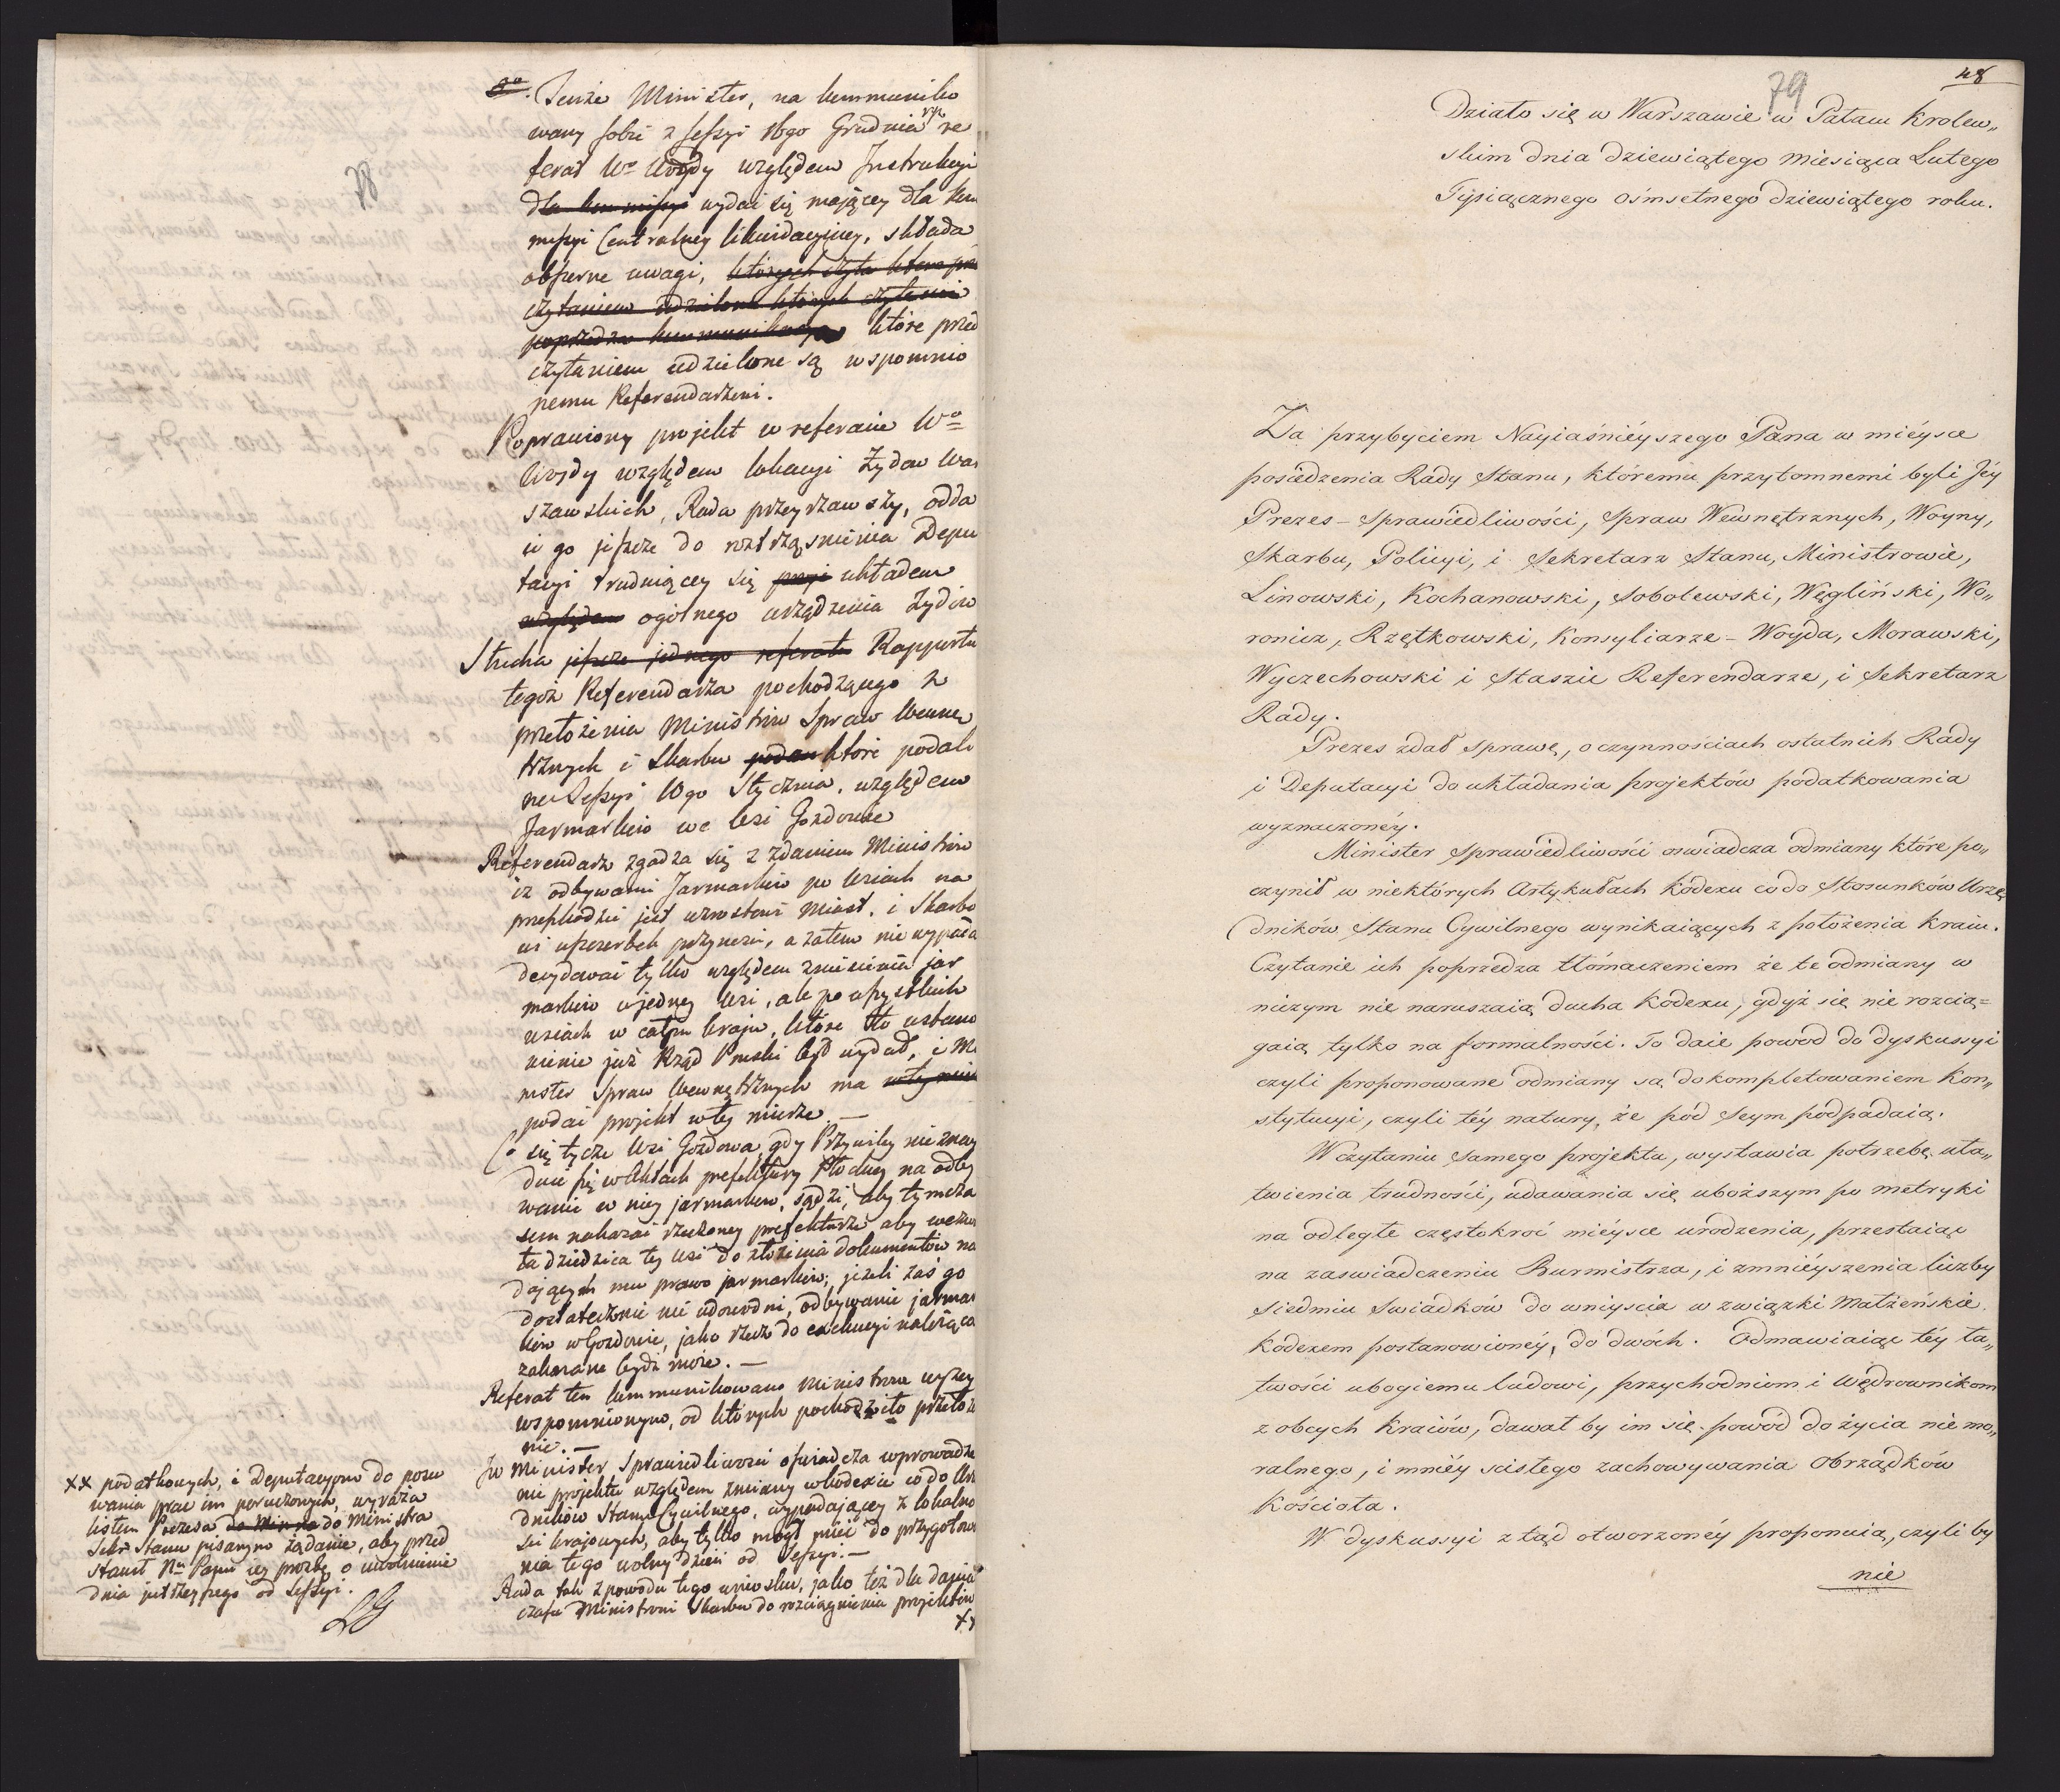 78
2º. Tenże Minister, na kommuniko
wany sobie z sessyi 16go Grudnia r. z. re
ferat Wº Woydy względem Instrukcyi
dla kommissyi wydać się maiącey dla kom
missyi Centralney likwidacyiney, składa
obszerne uwagi, których czyta które prze
czytaniem udzielone których czytanie
poprzedza kommunikacya które przed
czytaniem udzielone są wspomnio
nemu Referendarzowi.
Poprawiony projekt w referacie Wº
Woydy względem lokacyi Żydow War
szawskich, Rada przeyrzawszy, odda
ie go jeszcze do roztrząśnienia Depu
tacyi trudniącey się układem
względem ogólnego urządzenia Żydów
Słucha jeszcze jednego referatu Rapportu
tegoż Referendarza pochodzącego z
przełożenia Ministrów Spraw Wewnę
trznych i Skarbu podan które podali
na Sessyi 10go Stycznia, względem
Jarmarków we Wsi Gozdowie
Referendarz zgadza się z zdaniem Ministrów
iż odbywanie Jarmarków po Wsiach na
przeszkodzie jest wzrostowi Miast, i Skarbo
wi uszczerbek przynosi, a zatem nie wypada
decydować tylko względem zniesienia jar
marków w jedney Wsi, ale po wszystkich
wsiach w całym kraju, które to ustano
wienie już Rząd Pruski był wydał, i Mi
nister Spraw Wewnętrznych ma
podać projekt w tey mierze —
Co się tycze Wsi Gozdowa, gdy Przywiley nie znay
duie się w Aktach prefektury Płockiey na odby
wanie w niey jarmarków, sądzi, aby tymcza
sem nakazać rzeczoney prefekturze aby wezwa
ła dziedzica tey wsi do złożenia dokumentów na
dających mu prawo jarmarków; jeżeli zaś go
dostatecznie nie udowodni, odbywanie jarmar
ków w Gozdowie, jako rzecz do exekucyi należąca
zakazane bydź może. —
Referat ten kommunikowano Ministrom wyżey
wspomnionym, od których pochodziło przełoże
nie. —
JW Minister Sprawiedliwości oświadcza wprowadze
nie projektu względem zmiany w kodexie co do Urzę
dników Stanu Cywilnego, wypadającey z lokalno
ści krajowych, aby tylko mógł mieć do przygotowa
nia tego wolny dzień od Sessyi. —
Rada tak z powodu tego wniosku, jako też dla dania
czasu Ministrowi Skarbu do rozciągnienia projektów
xx
xx podatkowych, i Deputacyom do poszu
wania prac im poruczonych, wyraża
listem Prezesa do Ministra
Sekr. Stanu pisanym żądanie, aby przed
stawił Nu Panu iey prośbę o uwolnienie
dnia jutrzeyszego od Sessyi.
79
48
Działo się w Warszawie w Pałacu Krolew„
skim dnia dziewiątego miesiąca Lutego
Tysiącznego ośmsetnego dziewiątego roku.
Za przybyciem Nayiaśniéyszego Pana w miéysce
posiedzenia Rady Stanu, któremu przytomnemi byli Jéy
Prezes – Sprawiedliwości, Spraw Wewnętrznych, Woyny,
Skarbu, Policyi, i Sekretarz Stanu, Ministrowie,
Linowski, Kochanowski, Sobolewski, Węgliński, Wo„
ronicz, Rzętkowski, Konsyliarze – Woyda, Morawski,
Wyczechowski i Staszic Referendarze, i Sekretarz
Rady.
Prezes zdał sprawę, o czynnościach ostatnich Rady
i Deputacyi do układania projektów podatkowania
wyznaczonéy.
Minister Sprawiedliwości oswiadcza odmiany które po„
czynił w niektórych Artykułach Kodexu co do Stosunków Urzę
dników Stanu Cywilnego wynikaiących z położenia Kraiu.
Czytanie ich poprzedza tłómaczeniem że te odmiany w
niczym nie naruszaią ducha Kodexu, gdyż się nie rozcią=
gaią tylko na formalności. To daie powod do dyskussyi
czyli proponowane odmiany są dokompletowaniem Kon„
stytucyi, czyli téy natury, że pod Seym podpadaią.
W czytaniu samego projektu, wystawia potrzebę uła„
twienia trudności, udawania się uboższym po metryki
na odległe częstokroć miéysce urodzenia, przestaiąc
na zaswiadczeniu Burmistrza, i zmniéyszenia liczby
siedmiu swiadków do wniyscia w związki Małżeńskie
Kodexem postanowionéy, do dwóch. Odmawiaiąc téy ła„
twości ubogiemu ludowi, przychodniom i Wędrownikom
z obcych Kraiów, dawał by im się powod do życia nie mo„
ralnego, i mniéy scisłego zachowywania Obrządków
Kościoła.
W dyskussyi z tąd otworzonéy proponuią, czyli by
nie